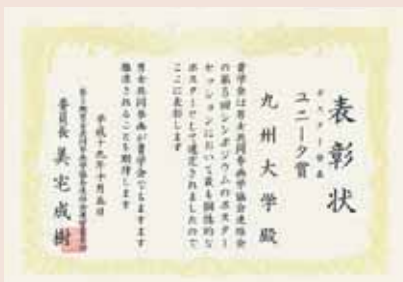 表彰状
ポスター発表
ユニーク賞
九州大学殿
貴学会は男女共同参画学協会連絡会
の第5回シンポジウムのポスター
セッションにおいて最も個性的な
ポスターとして選定されましたので
ここに表彰します
男女共同参画が貴学会でもますます
推進されることを期待します
平成十九年十月五日
委員長 美宅成樹